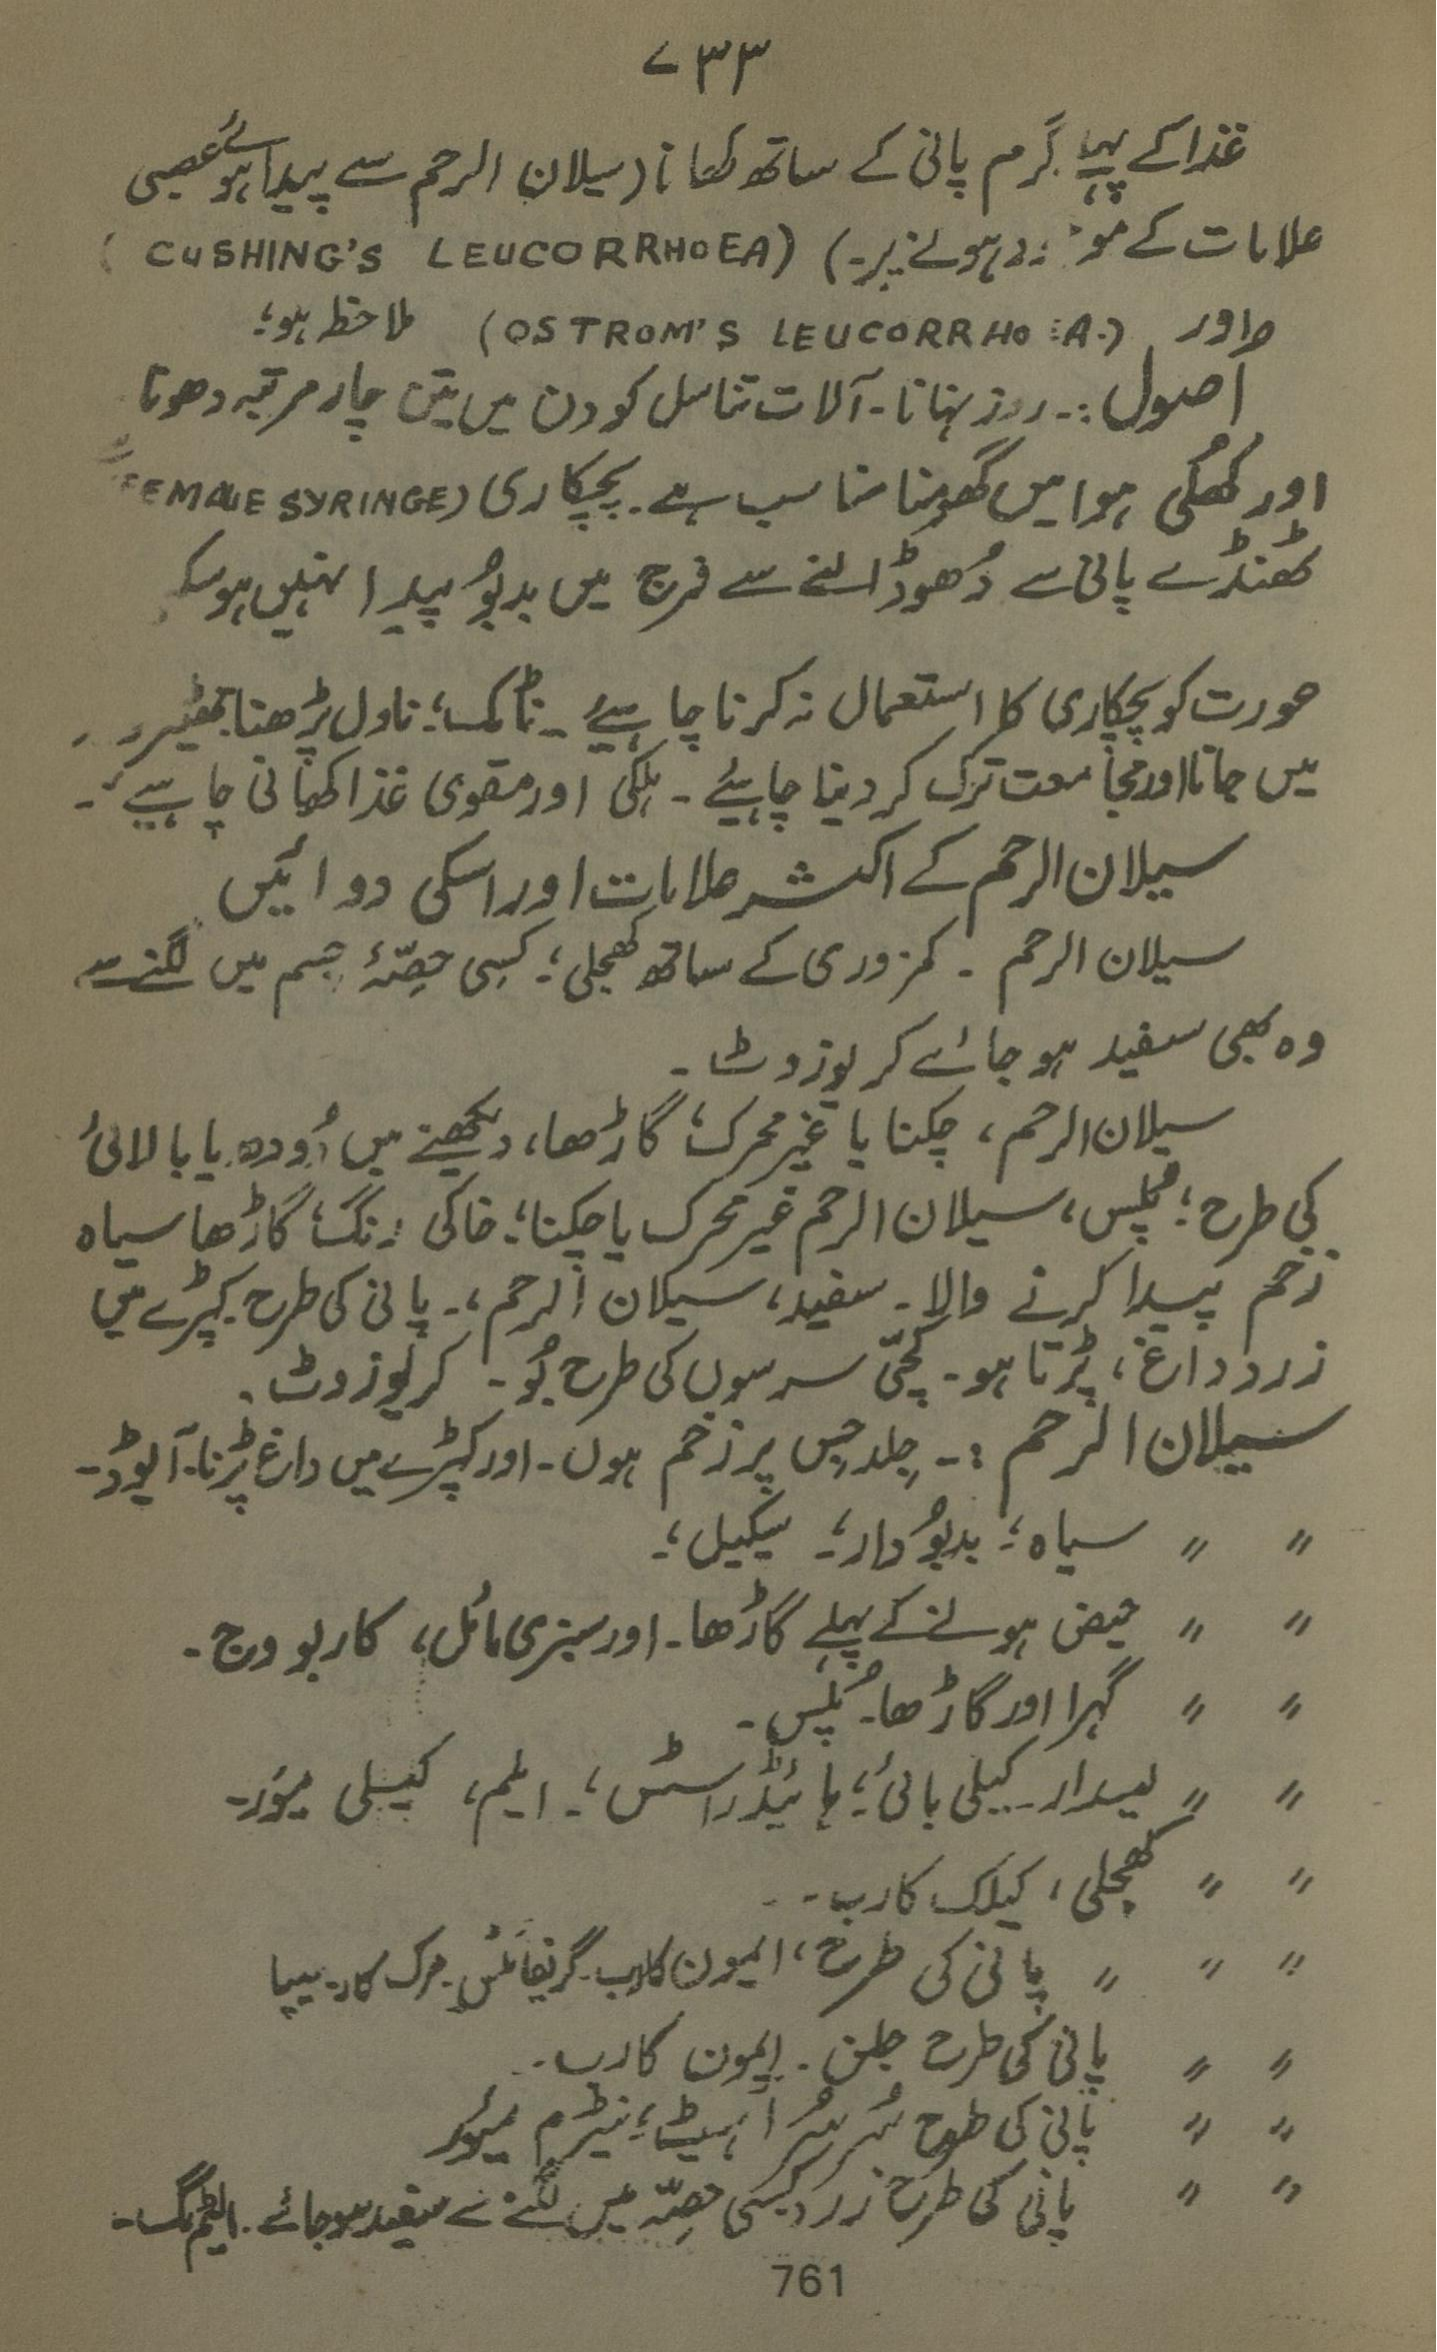 ۷۳۳
غذا کے پہلے گرم پانی کے ساتھ کھانا (سیلان الرحم سے پیدا ہوئے عصبی
علامات کے موجود ہونے پر۔) (CUSHING'S LEUCORRHOEA)
اور (OSTROM'S LEUCORRHOEA.) ملاحظہ ہو؛
اُصول:۔ روز نہانا۔ آلات تناسل کو دن میں تین چار مرتبہ دھونا
اور کُھلی ہوا میں گھومنا مناسب ہے۔ پچکاری (FEMALE SYRINGE)
ٹھنڈے پانی سے دُھو ڈالنے سے فرج میں بدبُو پیدا نہیں ہو
عورت کو پچکاری کا استعمال نہ کرنا چاہیئے۔ ناٹک؛ ناول پڑھنا تھیٹر
میں جانا اور مجامعت ترک کر دینا چاہیئے۔ ہلکی اور مقوی غذا کھانی چاہیے۔
سیلان الرحم کے اکثر علامات اور اسکی دوائیں
سیلان الرحم ۔ کمزوری کے ساتھ کھجلی؛ کسِی حِصّۂ جسم میں لگنے سے
وہ بھی سفید ہو جائے کریوزوٹ۔
سیلان الرحم، چکنا یا غیر محرک؛ گاڑھا، دیکھنے میں دُودھ یا بالائی
کی طرح؛ پُلس، سیلان الرحم غیر محرک یا چکنا؛ خاکی رنگ؛ گاڑھا سیاہ
زخم پیدا کرنے والا۔ سفید، سیلان الرحم،۔ پانی کی طرح کپڑے میں
زرد داغ، پڑتا ہو۔ کچّی سرسوں کی طرح بُو۔ کریوزوٹ۔
سیلان الرحم :۔ جِلد جِس پر زخم ہوں۔ اور کپڑے میں داغ پڑنا۔ آیوڈ۔
〃 〃 سیاہ؛ بدبُو دار؛۔ سیکیل؛۔
〃 〃 حیض ہونے کے پہلے گاڑھا۔ اور سبزی مائل، کاربو وج۔
〃 〃 گہرا اور گاڑھا۔ پُلس۔
〃 〃 لیسدار۔ کیلی بائی؛ ہائیڈراسٹس؛۔ ایلم، کیلی میور۔
〃 〃 کھجلی، کیلک کارب۔
〃 〃 〃 پانی کی طرح، ایمون کارب۔ گریفائٹس۔ مرک کار۔ سیپیا
〃 〃 پانی کی طرح جلن۔ ایمون کارب۔
〃 〃 پانی کی طرح سُرسُراہیٹ؛ نیٹرم میور
〃 〃 پانی کی طرح زرد کسی حصّہ میں لگنے سے سفید ہو جائے۔
761